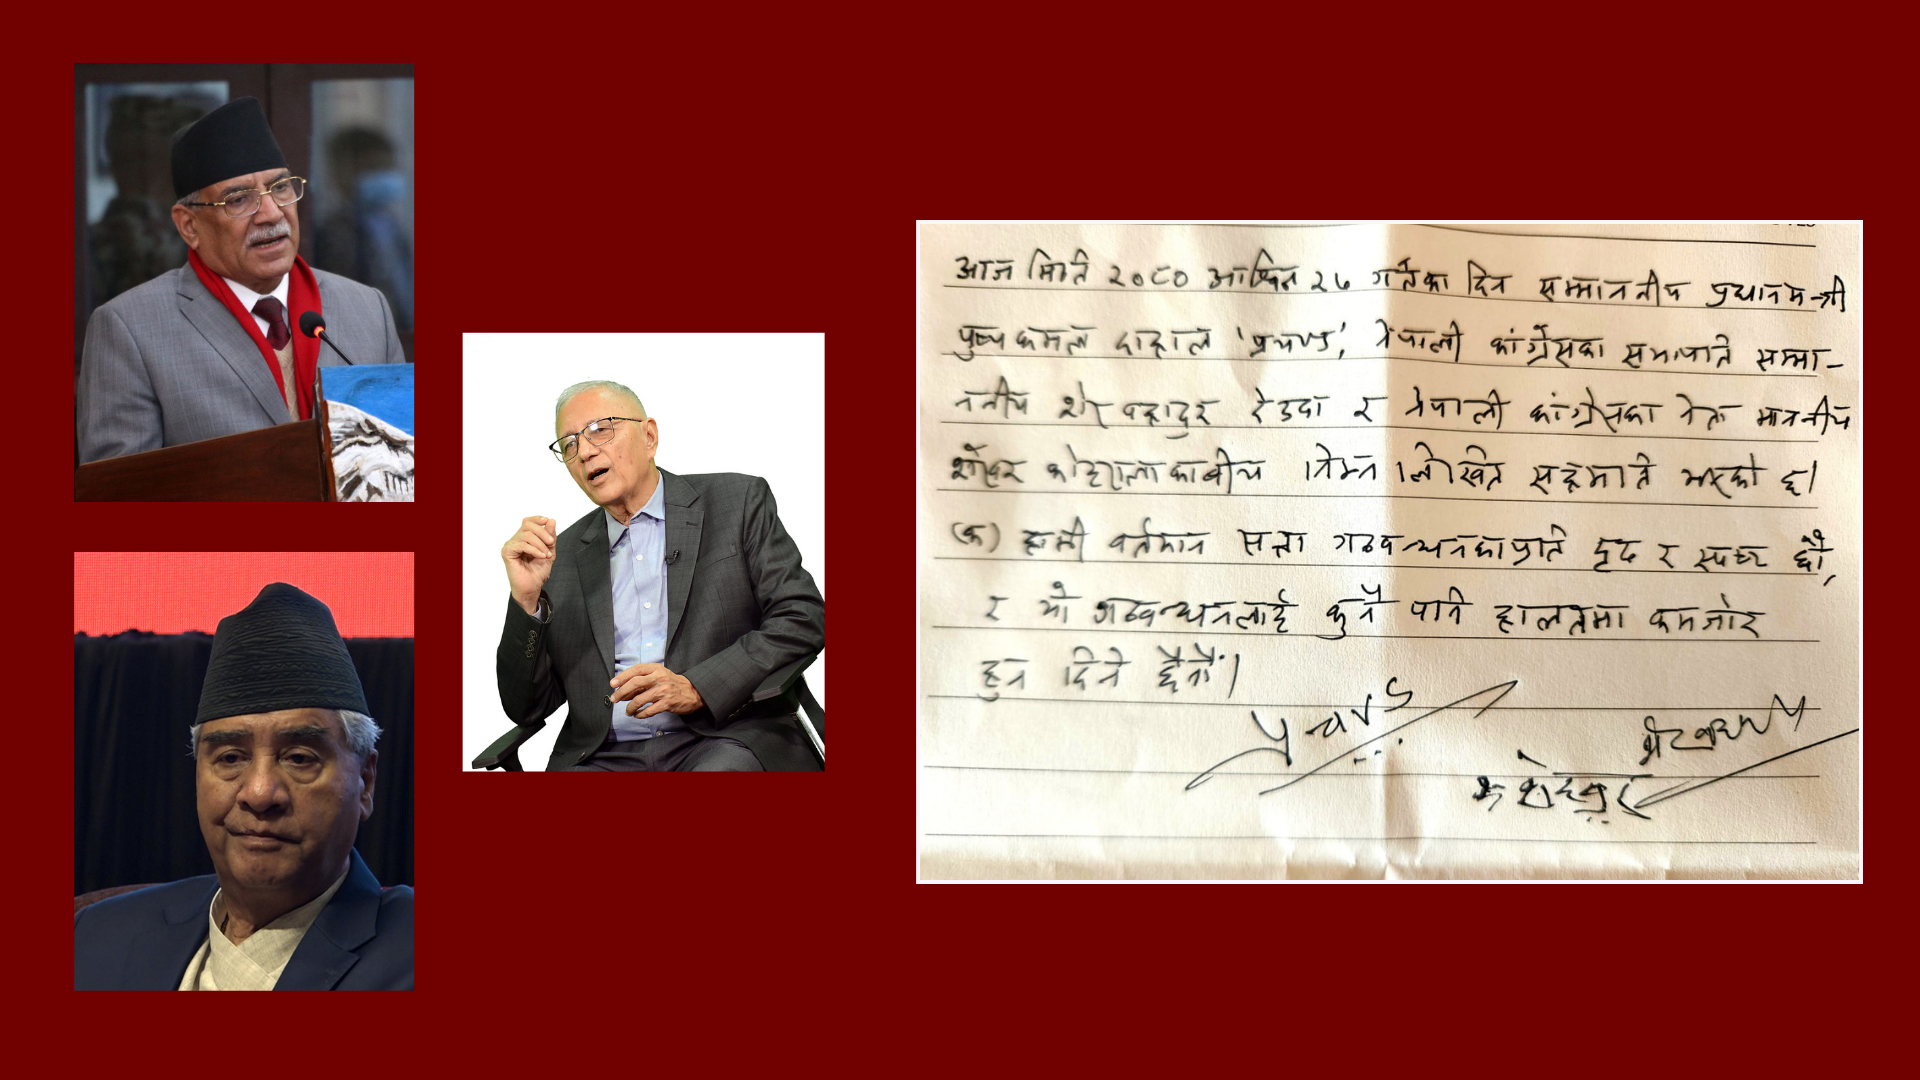 आज मिति २०८० आश्विन २७ गतेका दिन सम्माननीय प्रधानमन्त्री
पुष्पकमल दाहाल 'प्रचण्ड', नेपाली कांग्रेसका सभापति सम्मा-
ननीय शेरबहादुर देउवा र नेपाली कांग्रेसका नेता माननीय
शेखर कोइरालाका बीच निम्न लिखित सहमति भएको छ।
(क) हामी वर्तमान सत्ता गठबन्धनका प्रति दृढ र स्पष्ट छौं,
र यो गठबन्धनलाई कुनै पनि हालतमा कमजोर
हुन दिने छैनौं।